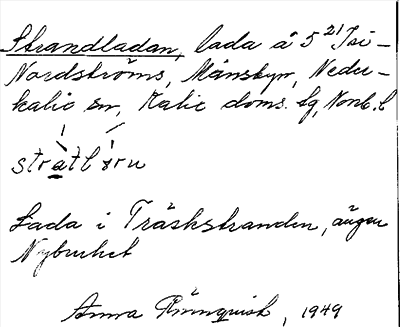 Strandladan, lada å 5 21 Isi-
Nordströms, Månsbyn, Neder-
kalix sn, Kalix doms. bg, Nonb. l
stratløru
Lada i Träskstranden, ängen
Nybruket
Anna Rönnquist, 1949